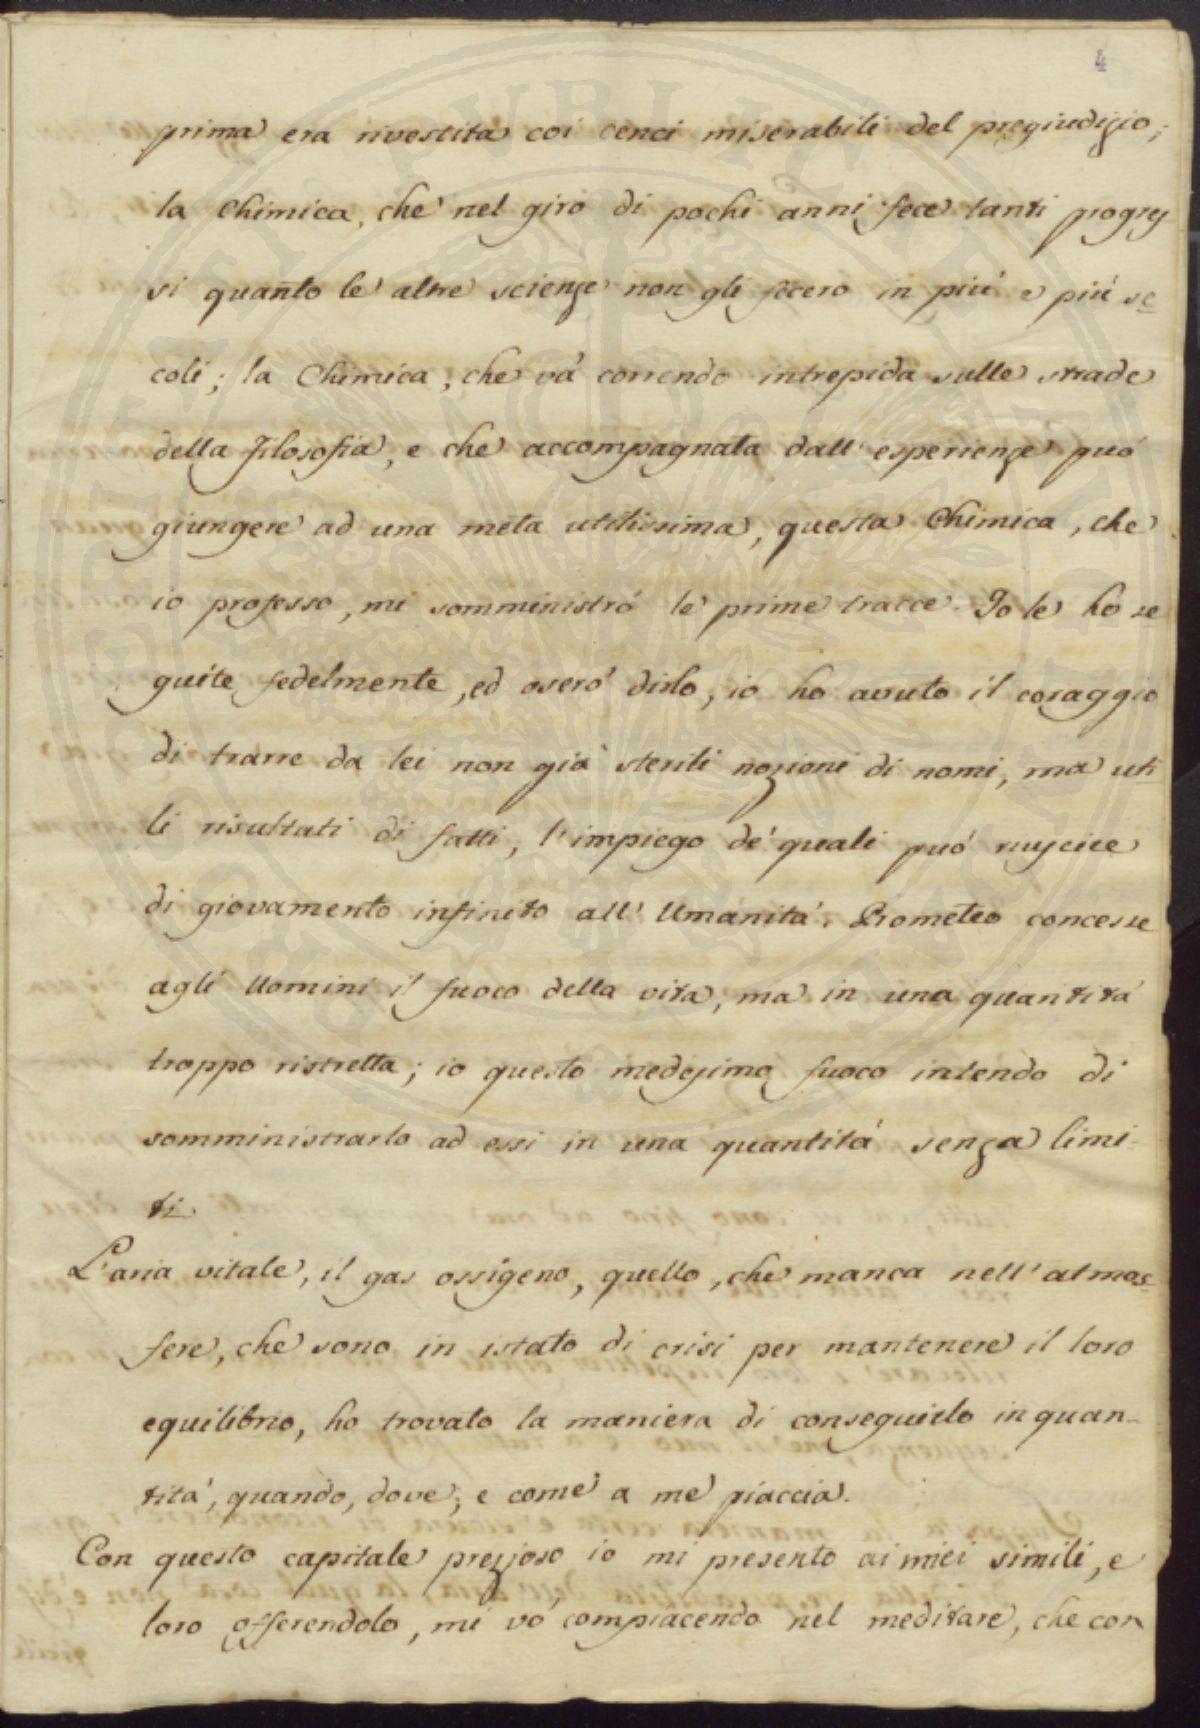 4
prima era rivestita coi cenci miserabili del pregiudizio;
la Chimica, che nel giro di pochi anni fece tanti progres
si quanto le altre scienze non gli fecero in piú e piú se
coli; la Chimica, che và correndo intrepida sulle strade
della filosofia, e che accompagnata dall' esperienze puó
giungere ad una meta utilissima, questa Chimica, che
io professo, mi somministró le prime tracce. Io le ho se
guite fedelmente, ed oseró dirlo, io ho avuto il coraggio
di trarre da lei non già sterili nozioni di nomi, ma uti
li risultati di fatti, l'impiego de' quali puó riuscire
di giovamento infinito all' Umanità. Prometeo concesse
agli Uomini il fuoco della vita, ma in una quantità
troppo ristretta; io questo medesimo fuoco intendo di
somministrarlo ad essi in una quantitá senza limi-
ti.
L'aria vitale, il gas ossigeno, quello, che manca nell' atmos
fere, che sono in istato di crisi per mantenere il loro
equilibrio, ho trovato la maniera di conseguirlo in quan-
titá, quando, dove, e come a me piaccia.
Con questo capitale prezioso io mi presento ai miei simili, e
loro offerendolo, mi vó compiacendo nel meditare, che con